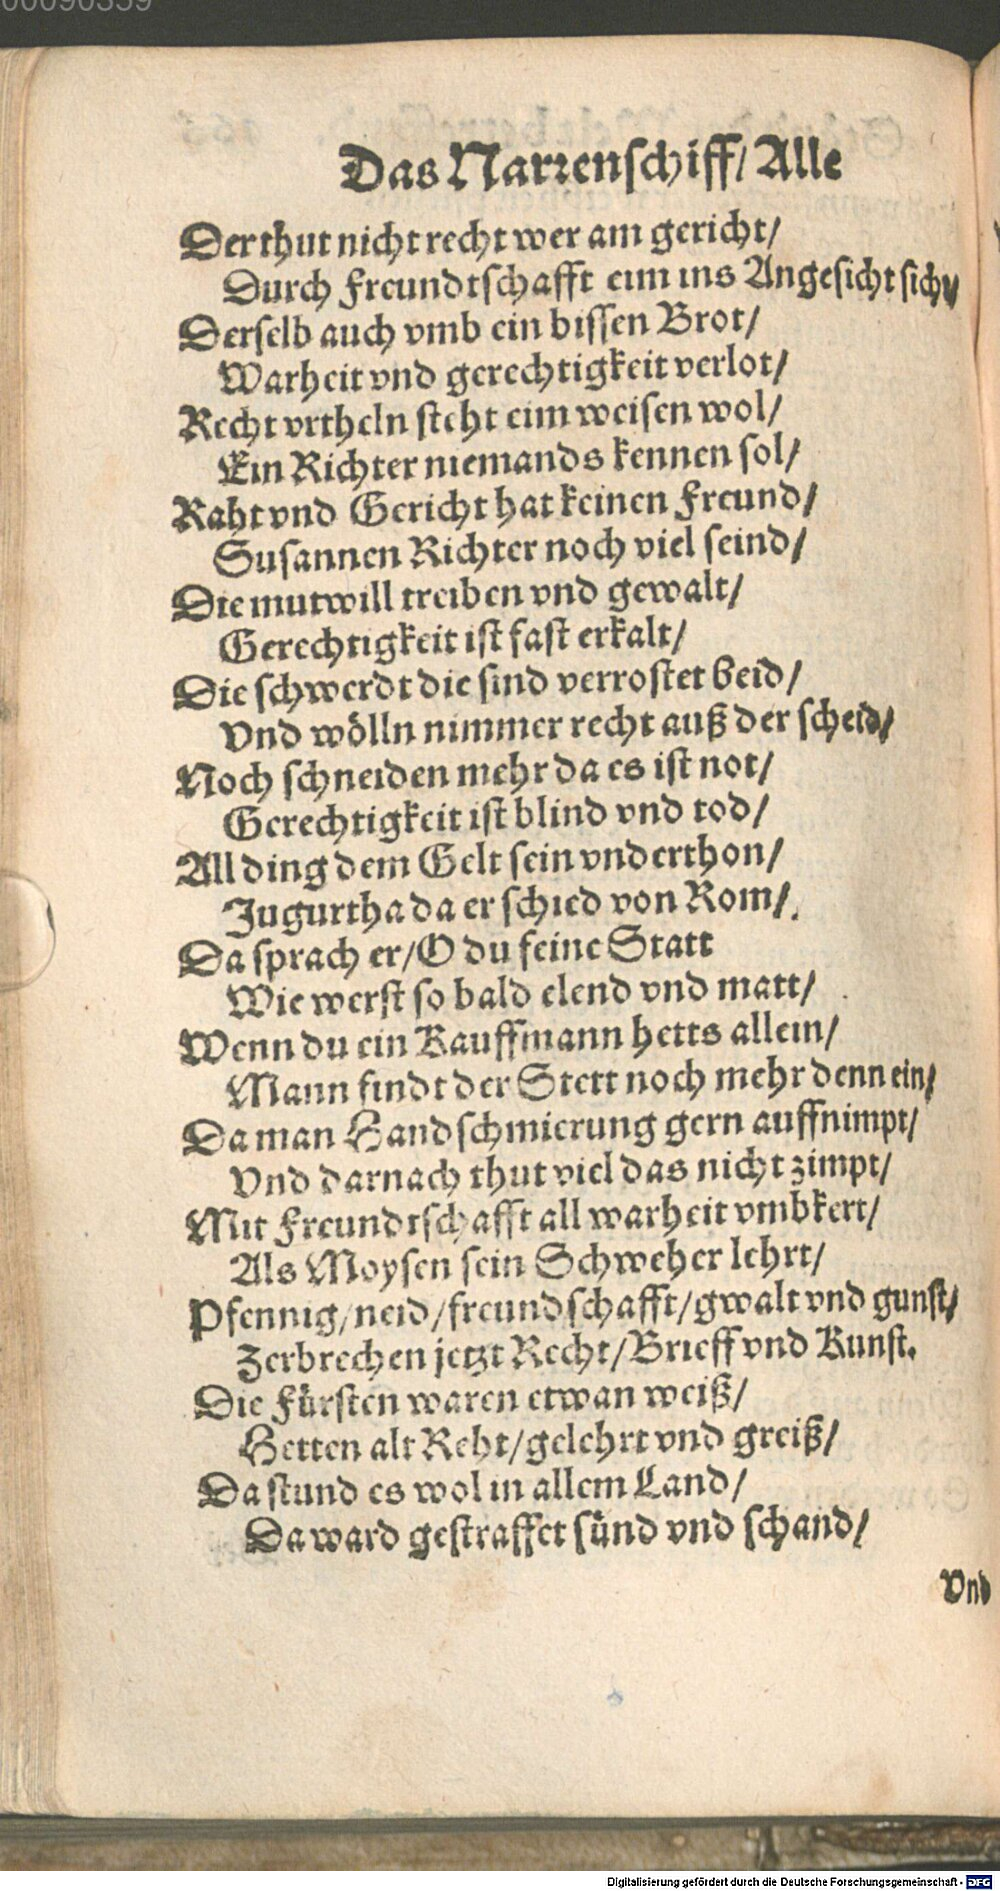 00090359
Das Narrenschiff/ Alle
Der thut nicht recht wer am gericht/
Durch Freundtschafft eim ins Angesicht sicht/
Derselb auch vmb ein bissen Brot/
Warheit vnd gerechtigkeit verlot/
Recht vrtheln steht eim weisen wol/
Ein Richter niemands kennen sol/
Raht vnd Gericht hat keinen Freund/
Susannen Richter noch viel seind/
Die mutwill treiben vnd gewalt/
Gerechtigkeit ist fast erkalt/
Die schwerdt die sind verrostet beid/
Vnd wölln nimmer recht auß der scheid/
Noch schneiden mehr da es ist not/
Gerechtigkeit ist blind vnd tod/
All ding dem Gelt sein vnderthon/
Jugurtha da er schied von Rom/.
Da sprach er/ O du feine Statt
Wie werst so bald elend vnd matt/
Wenn du ein Kauffmann hetts allein/
Mann findt der Stett noch mehr denn ein/
Da man Handschmierung gern auffnimpt/
Vnd darnach thut viel das nicht zimpt/
Mit Freundtschafft all warheit vmbkert/
Als Moysen sein Schweher lehrt/
Pfennig/ neid/ freundschafft/ gwalt vnd gunst/
Zerbrechen jetzt Recht/ Brieff vnd Kunst.
Die Fürsten waren etwan weiß/
Hetten alt Reht/ gelehrt vnd greiß/
Da stund es wol in allem Land/
Da ward gestraffet sünd vnd schand/
Vnd
Digitalisierung gefördert durch die Deutsche Forschungsgemeinschaft - DFG